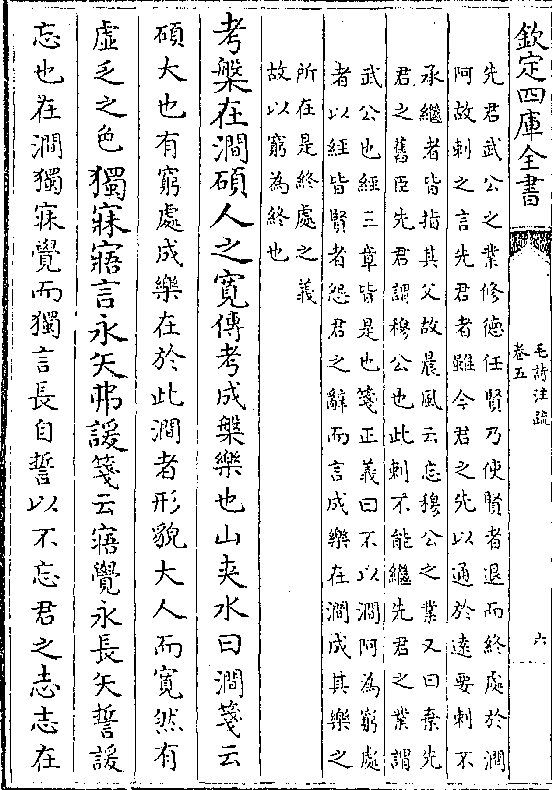 欽定四庫全書
毛詩注疏
卷五
六
先君武公之業修德任賢乃使賢者退而終處於澗
阿故刺之言先君者雖今君之先以通於遠要刺不
承繼者皆指其父故晨風云忘穆公之業又曰棄先
君之舊臣先君謂穆公也此刺不能繼先君之業謂
武公也經三章皆是也箋正義曰不以澗阿為窮處
者以經皆賢者怨君之辭而言成樂在澗成其樂之
所在是終處之義
故以窮為終也
考槃在澗碩人之寛傳考成槃樂也山夾水曰澗箋云
碩大也有窮處成樂在於此澗者形貌大人而寛然有
虛乏之色獨寐寤言永矢弗諼箋云寤覺永長矢誓諼
忘也在澗獨寐覺而獨言長自誓以不忘君之志志在